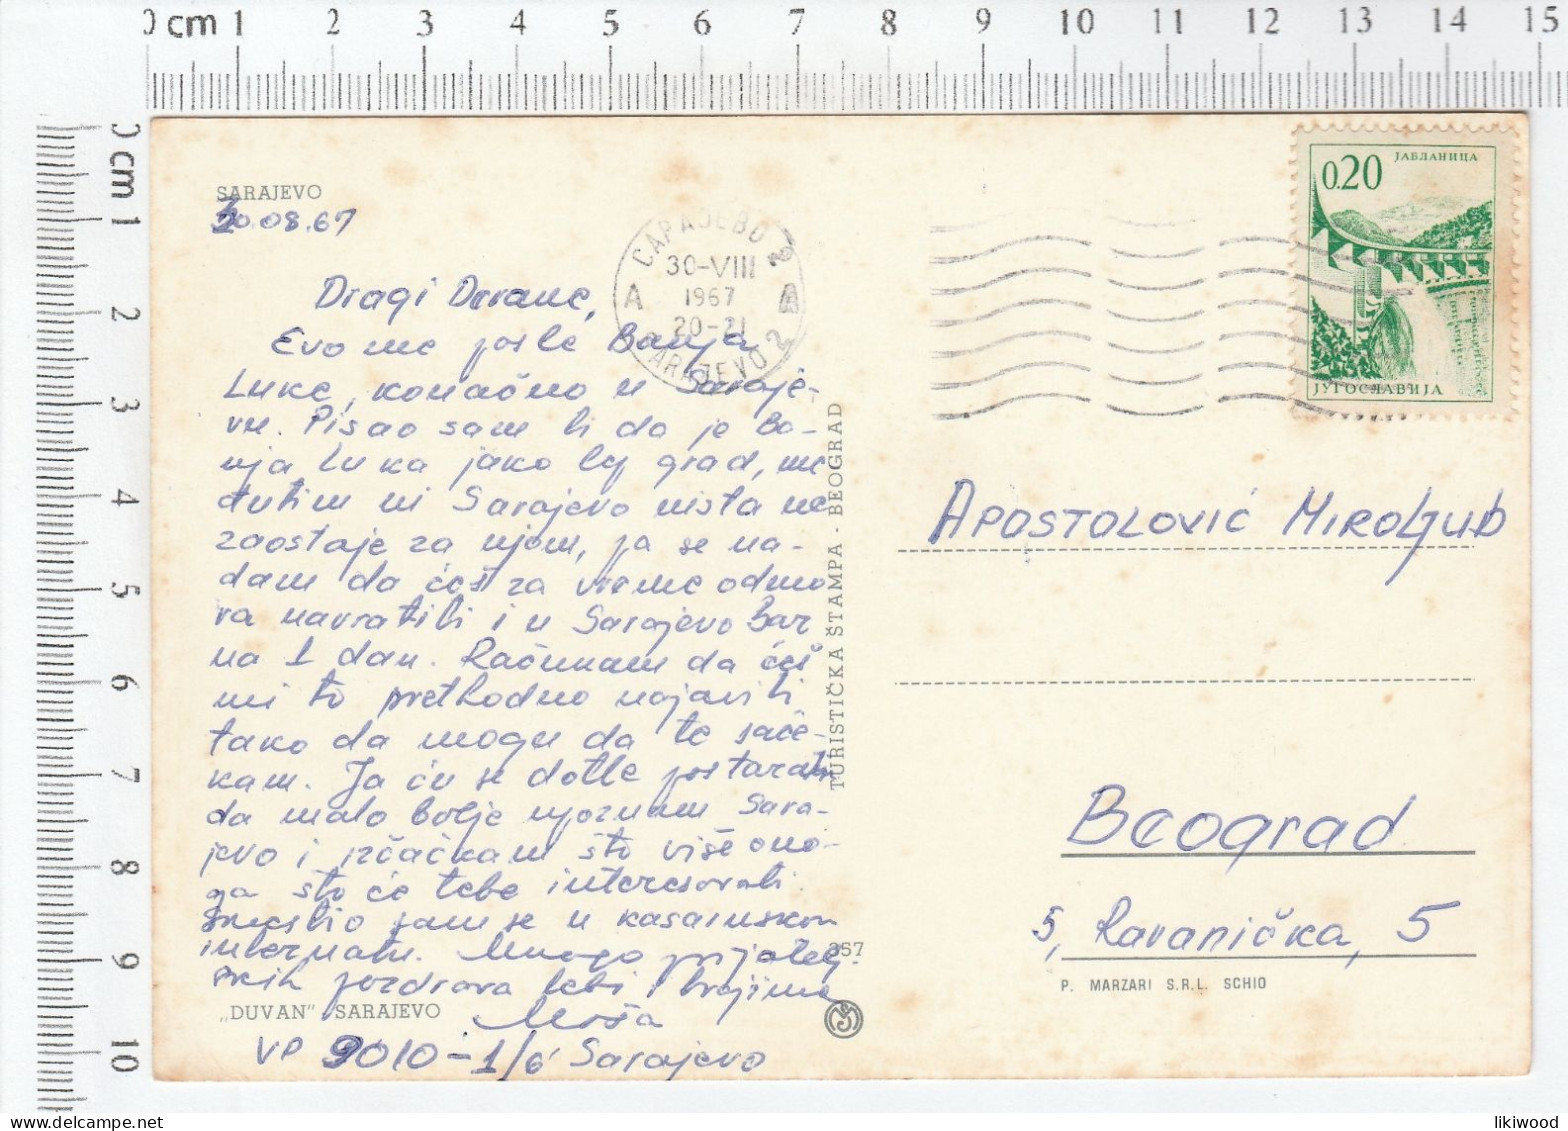 0 cm 1 2 3 4 5 6 7 8 9 10 11 12 13 14 15
0 cm 1 2 3 4 5 6 7 8 9 10
SARAJEVO
30.08.67
САРАЈЕВО 2
30-VIII
1967
20-21
A
SARAJEVO 2
0.20
ЈАБЛАНИЦА
ЈУГОСЛАВИЈА
Dragi
Evo me posle Banja
Luke, konačno u Saraje-
vu. Pisao sam ti da je Ba-
nja Luka jako lep grad, me
đutim ni Sarajevo ništa ne
zaostaje za njom, pa se na-
dam da ćeš za vreme odmo
ra navratiti i u Sarajevo bar
na 1 dan. Računam da ćeš
mi to prethodno najaviti
tako da mogu da te sače-
kam. Ja ću se dotle postarati
da malo bolje upoznam Sara-
jevo i iščačkam što više ono-
ga što će tebe interesovati.
Smestio sam se u kasarnskom
internatu. Mnogo prijatelj-
skih pozdrava tebi i tvojima
Moša
VP 9010-1/6 Sarajevo
„DUVAN" SARAJEVO
TURISTIČKA ŠTAMPA - BEOGRAD
357
APOSTOLOVIĆ MIROLJUB
Beograd
5, Ravanička, 5
P. MARZARI S.R.L. SCHIO
likiwood